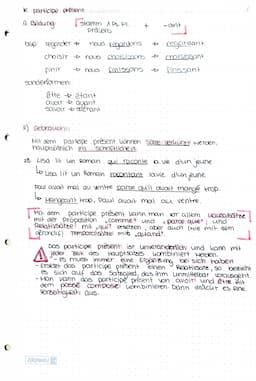 K participe présent
i) Bildung: Stamm 1. Ps. Pl. + -ant
présens
bsp regarder → nous regardons → regardant
choisir → nous choisissons → choisissant
finir → nous finissons → finissant
sonderformen:
être → étant
avoir → ayant
savoir → sachant
ii) Gebrauch:
Mit dem participe présent können Sätze verkürzt werden,
hauptsächlich im schriftlichen.
zB Lisa lit un Roman qui raconte la vie d'un jeune.
↳ Lisa lit un Roman racontant la vie d'un jeune.
Paul avait mal au ventre parce qu'il avait mangé trop.
↳ Mangeant trop, Paul avait mal au ventre.
Mit dem participe présent kann man vor allem Kausalsätze
mit der Präposition „comme" und „parce que", und
Relativsätze mit „qui" ersetzen, aber auch (wie mit dem
gérondif) Temporalsätze mit „quand".
Das participe présent ist unveränderlich und kann mit
jeder Zeit des Hauptsatzes kombiniert werden.
- es muss immer eine Ergänzung bei sich haben
- Ersetzt das participe présent einen Relativsatz, so bezieht
es sich auf das Satzglied, das ihm unmittelbar vorausgeht.
- Man kann das participe présent von avoir und être mit
dem passé composé kombinieren. Dann drückt es eine
Vorzeitigkeit aus.